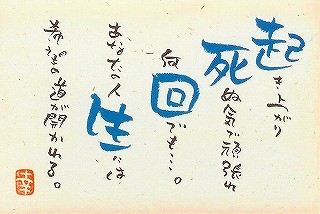 起き上がり
死ぬ気で頑張れ
何回でも・・・。
あなたの人生には
希望の道が開かれる。
幸